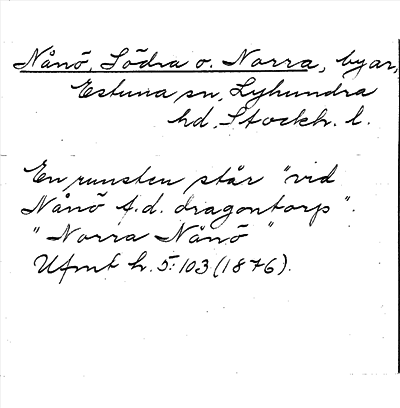 Nånö, Södra o. Norra, byar,
Estuna sn, Lyhundra
hd, Stockh. l.
En runsten står "vid
Nånö f.d. dragontorp".
"Norra Nånö"
Ufmt h. 5:103 (1876).